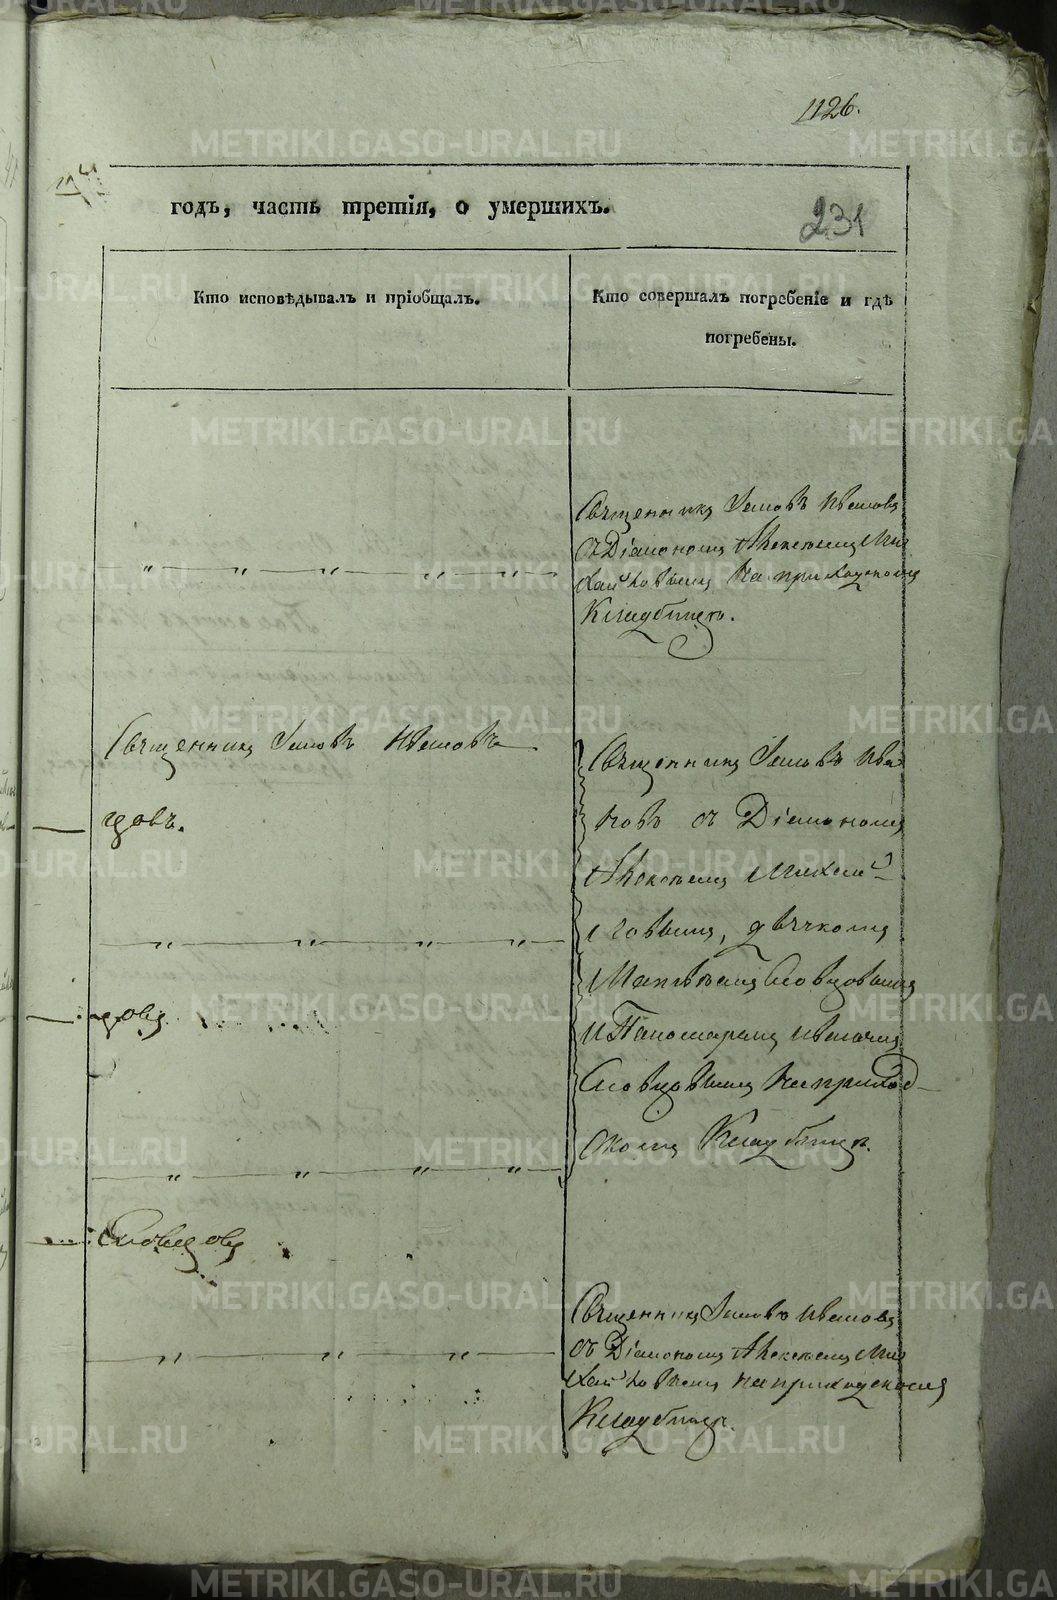 1126.
годъ, часть третія, о умершихъ.
231
Кто исповѣдывалъ и пріобщалъ.
Кто совершалъ погребеніе и гдѣ
погребены.
Священникъ Іаковъ Ивановъ
съ Діакономъ Алексѣемъ Ми
хайловымъ На приходскомъ
Кладбищѣ.
Священникъ Іаковъ
цовъ.
цовъ
Словцовъ
Священникъ Іаковъ Ива
новъ съ Діакономъ
Алексѣемъ Михай
ловымъ, дьячкомъ
Матвѣемъ Словцовымъ
и Пономаремъ Иваномъ
Словцовымъ на приход
скомъ Кладбищѣ.
Священникъ Іаковъ Ивановъ
съ Діакономъ Алексѣемъ Ми
хайловымъ на приходскомъ
Кладбищѣ.
METRIKI.GASO-URAL.RU